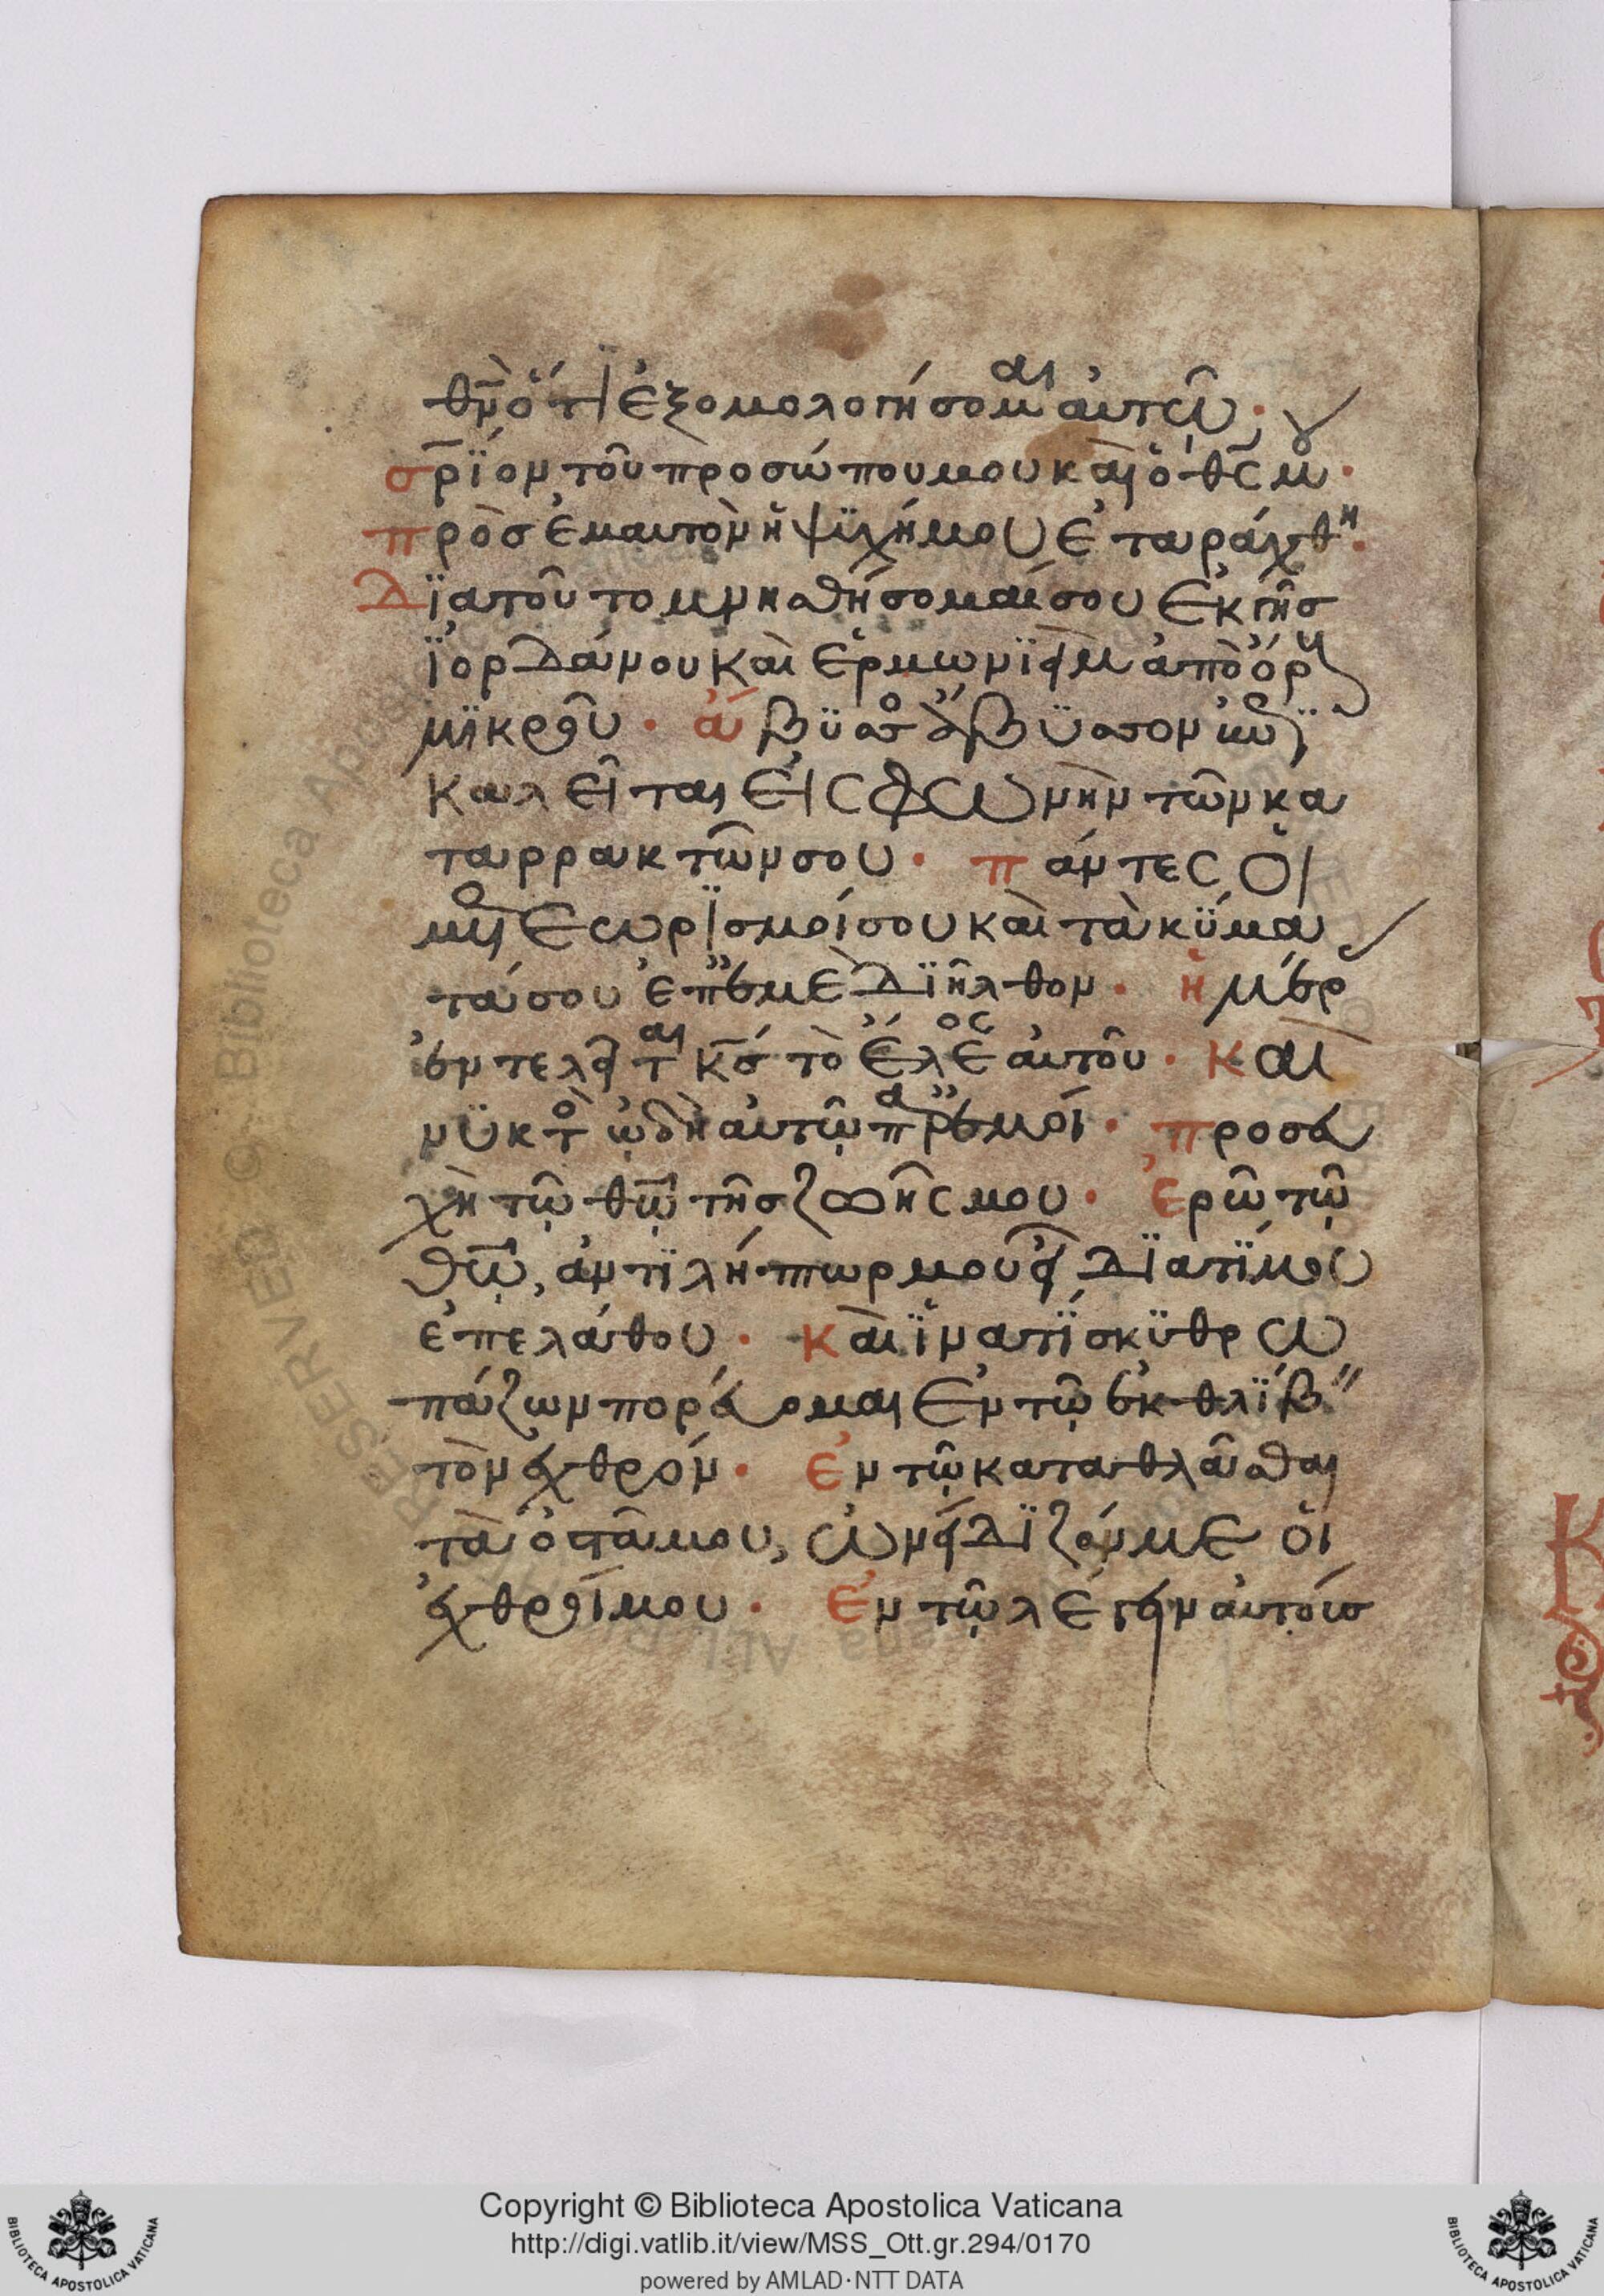 θν ὅτι ἐξομολογήσομαι αὐτῶ·
σρϊον τοῦ προσώπου μου καὶ ὁ θς μου·
πρὸς ἐμαυτὸν ἡ ψϋχή μου ἐταράχθη·
Δϊατοῦτο μνησθήσομαί σου ἐκ γῆς
ϊορδάνου καὶ ἐρμωνϊεὶμ ἀπὸ ὄρους
μϊκροῦ· ἄβϋσσος ἄβϋσσον
καλεῖται εἰς φωνὴν τῶν κα
ταρρακτῶν σου· πάντες οἱ
μετεωρϊσμοί σου καὶ τὰ κϋμα
τά σου ἐπ ἐμὲ Δϊῆλθον· ἡμέρ
ἐντελεῖται κς τὸ ἔλεος αὐτοῦ· καὶ
νϋκτὸς ὠδὴ αὐτῶ παρ ἐμοί· προσευ
χὴ τῶ θῶ τῆς ζωῆς μου· ἐρῶ τῶ
θῶ, ἀντϊλήπτωρ μου εἶ Δϊατί μου
ἐπελάθου· καὶ ϊνατί σκϋθρω
πάζων πορεύομαι ἐν τῶ ἐκθλϊβειν
τὸν ἐχθρόν· ἐν τῶ καταθλᾶσθαι
τὰ ὀστᾶ μου, ὠνείδϊζόν με οἱ
ἐχθροί μου· ἐν τῶ λέγειν αὐτοίς
Copyright © Biblioteca Apostolica Vaticana
http://digi.vatlib.it/view/MSS_Ott.gr.294/0170
powered by AMLAD·NTT DATA
BIBLIOTECA APOSTOLICA VATICANA
BIBLIOTECA APOSTOLICA VATICANA